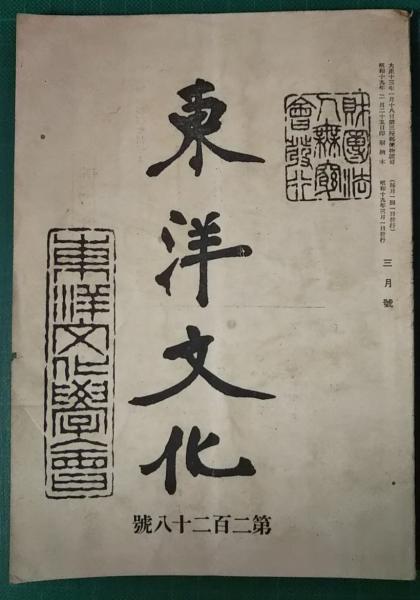 大正十三年一月十八日第三種郵便物認可
昭和十九年二月二十五日印刷納本
（毎月一回一日発行）
昭和十九年三月一日発行
三月號
財團法
人無窮
會發行
東洋文化
東洋文化學會
第二百二十八號